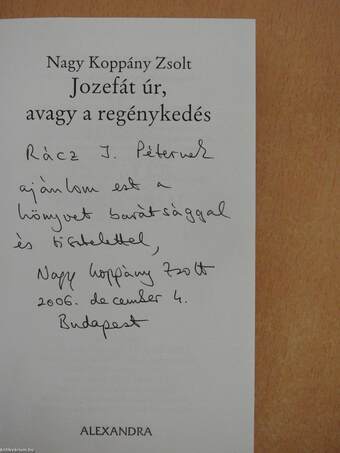 Nagy Koppány Zsolt
Jozefát úr,
avagy a regénykedés
Rácz J. Péternek
ajánlom ezt a
könyvet barátsággal
és tisztelettel,
Nagy Koppány Zsolt
2006. december 4.
Budapest
ALEXANDRA